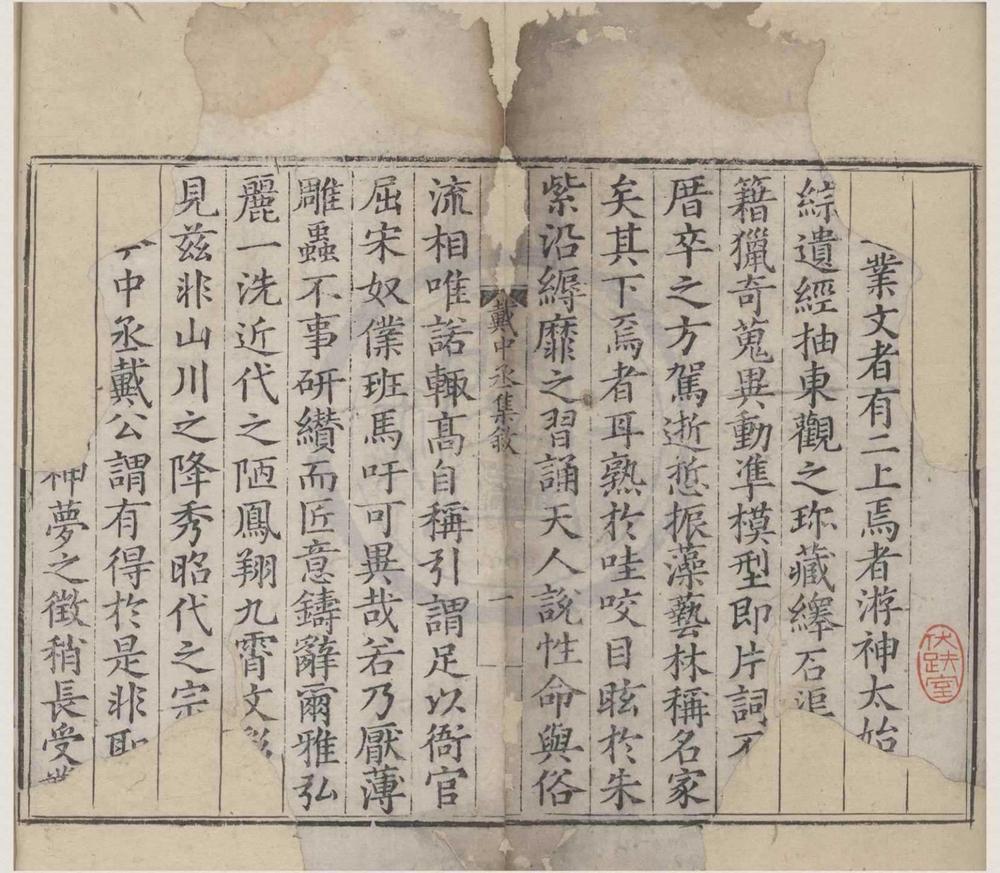 業文者有二上焉者游神太始
綜遺經抽東觀之珎藏繹石渠
籍獵奇蒐異動準模型即片詞不
厝卒之方駕逝悊振藻藝林稱名家
矣其下焉者耳熟於哇咬目眩於朱
紫沿縟靡之習誦天人說性命與俗
戴中丞集敘
一
流相唯諾輙高自稱引謂足以衙官
屈宋奴僕班馬吁可異哉若乃厭薄
雕蟲不事研纘而匠意鑄辭爾雅弘
麗一洗近代之陋鳳翔九霄文
見茲非山川之降秀昭代之宗
中丞戴公謂有得於是非耶
神夢之徵稍長受業
伏跌室